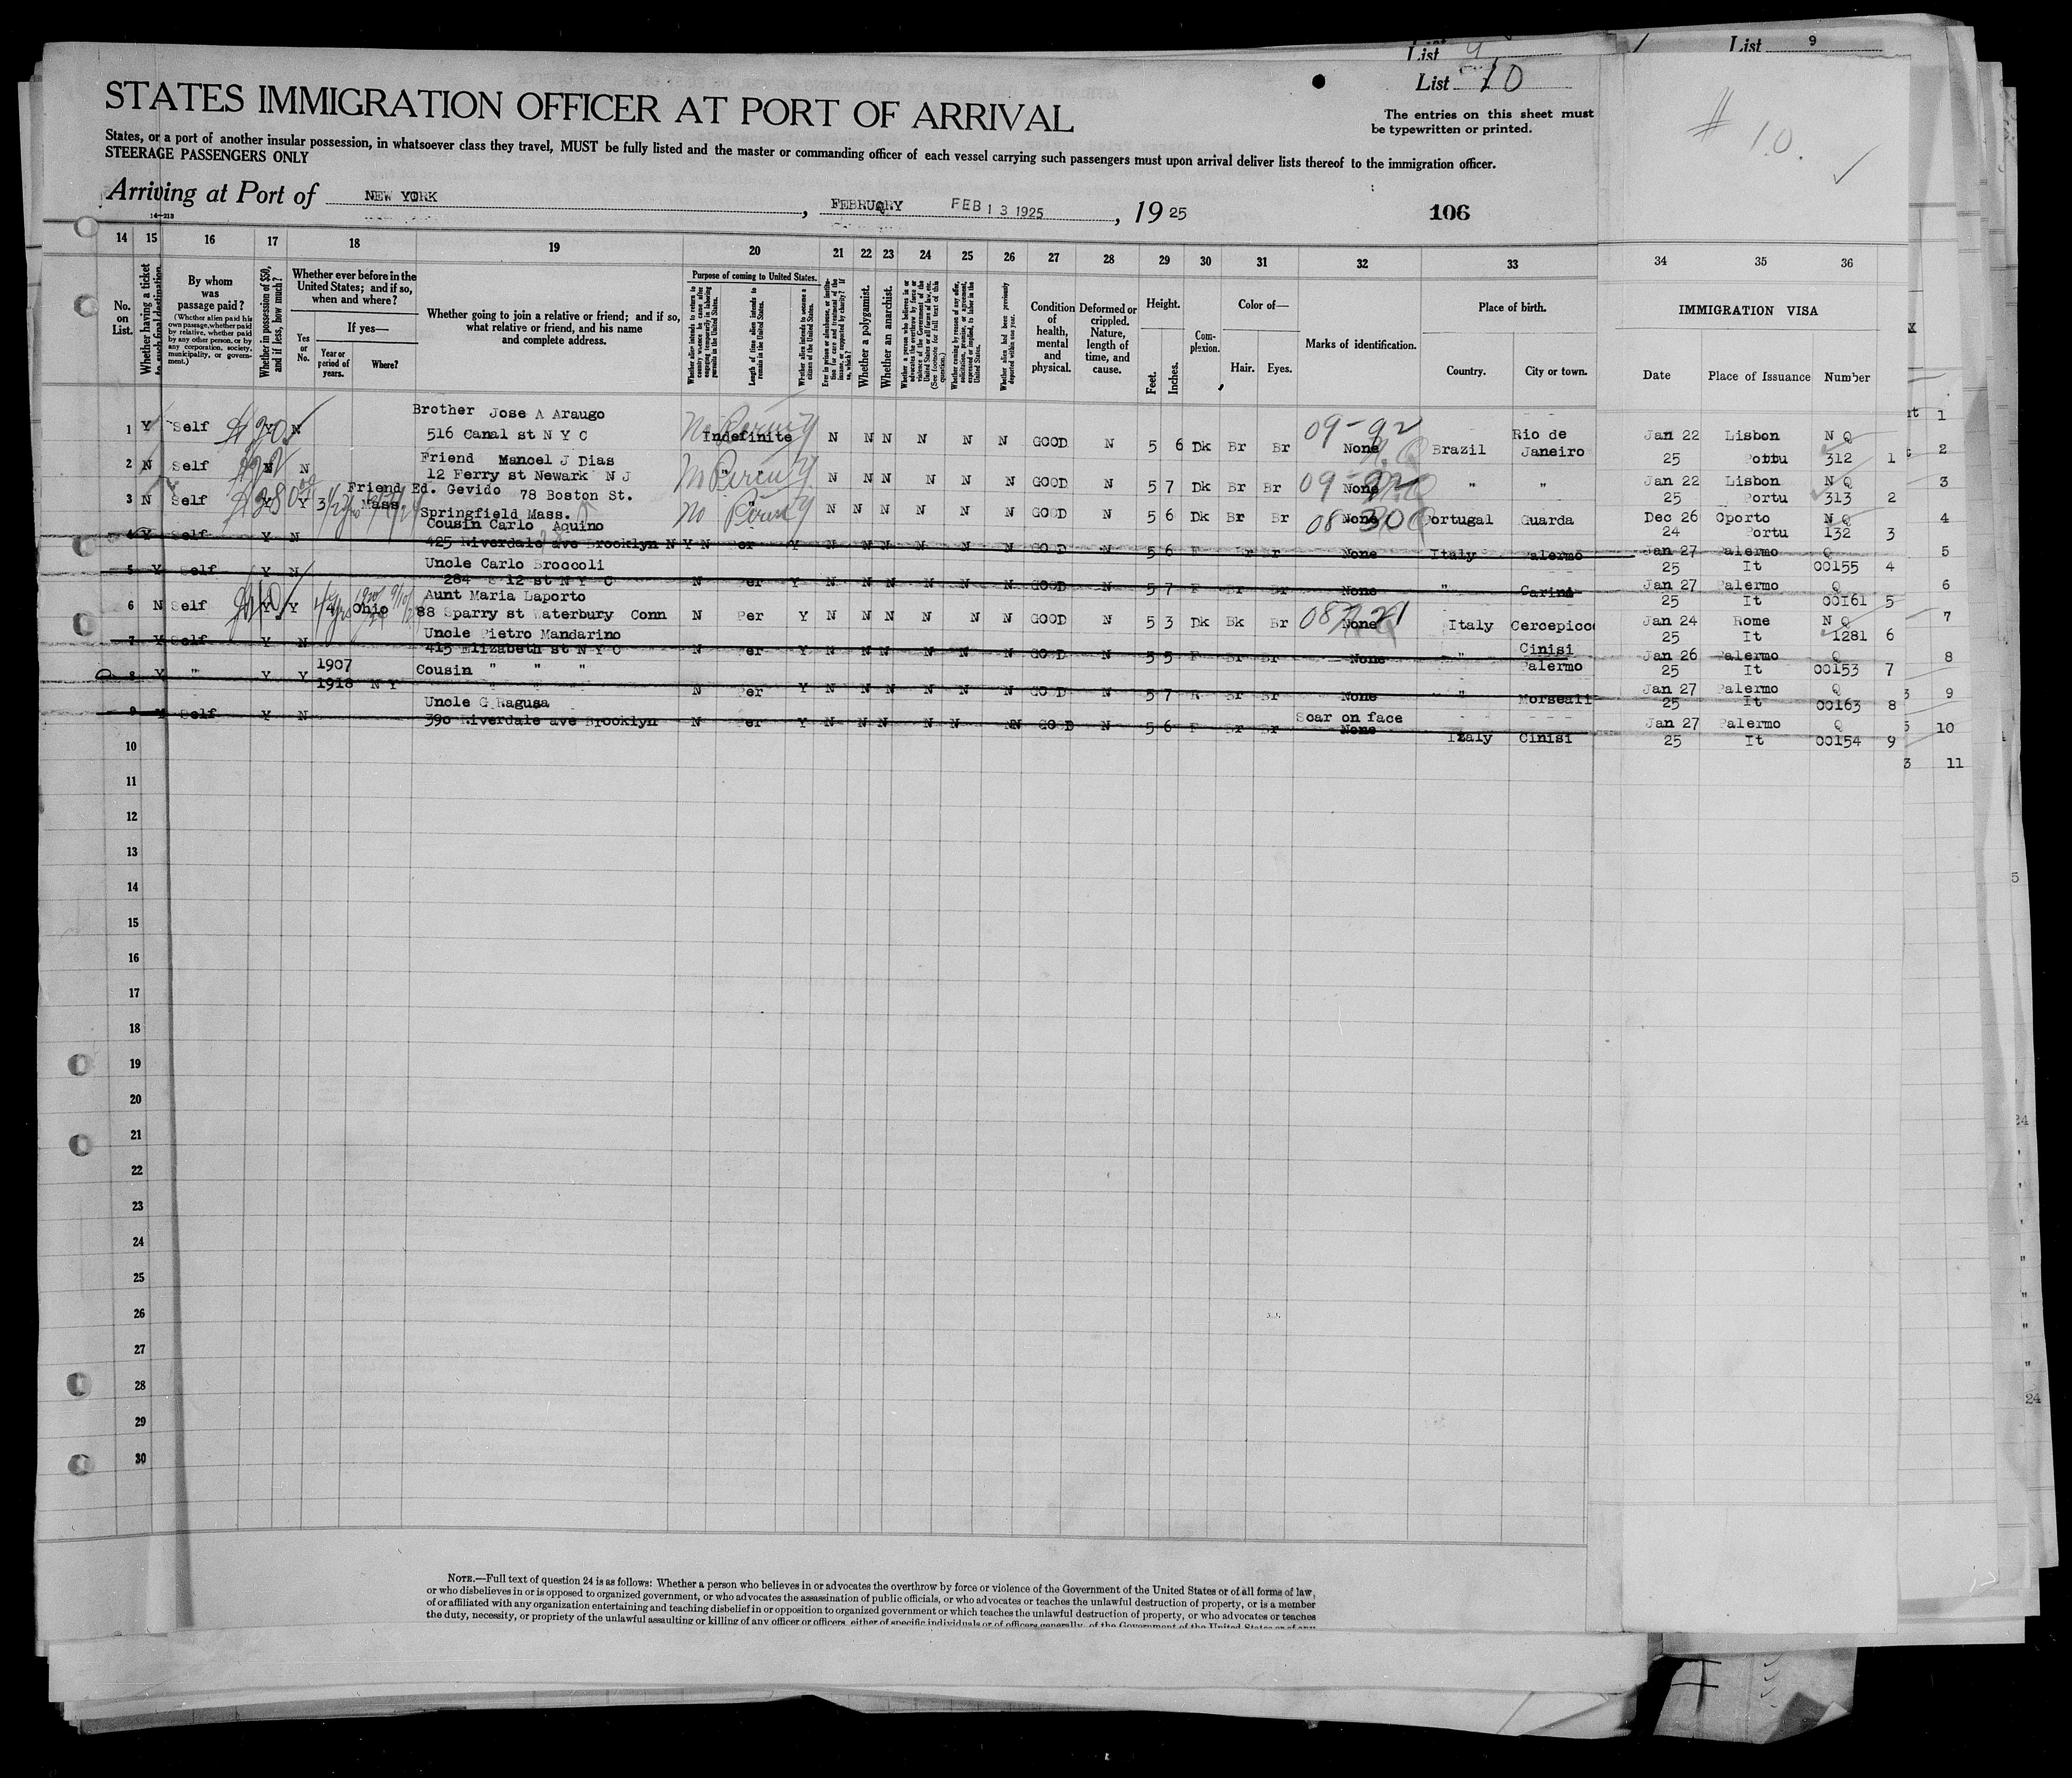 List 9
List 9
List 10
STATES IMMIGRATION OFFICER AT PORT OF ARRIVAL
The entries on this sheet must
be typewritten or printed.
# 10.
States, or a port of another insular possession, in whatsoever class they travel, MUST be fully listed and the master or commanding officer of each vessel carrying such passengers must upon arrival deliver lists thereof to the immigration officer.
STEERAGE PASSENGERS ONLY
Arriving at Port of NEW YORK, FEBRUQRY FEB 13 1925, 19 25
106
14 15 16 17 18 19 20 21 22 23 24 25 26 27 28 29 30 31 32 33 34 35 36
No. on List.
Whether having a ticket to such final destination.
By whom was passage paid?
(Whether alien paid his own passage, whether paid by relative, whether paid by any other person, or by any corporation, society, municipality, or government.)
Whether in possession of $50, and if less, how much?
Whether ever before in the United States; and if so, when and where?
Yes or No.
If yes—
Year or period of years.
Where?
Whether going to join a relative or friend; and if so, what relative or friend, and his name and complete address.
Purpose of coming to United States.
Length of time alien intends to remain in the United States.
Whether alien intends to become a citizen of the United States.
Whether a polygamist.
Whether an anarchist.
Condition of health, mental and physical.
Deformed or crippled. Nature, length of time, and cause.
Height.
Feet. Inches.
Complexion.
Color of—
Hair. Eyes.
Marks of identification.
Place of birth.
Country. City or town.
IMMIGRATION VISA
Date Place of Issuance Number
Brother Jose A Araugo 09-92 Rio de Jan 22 Lisbon N Q
1 Y Self $20 Y N 516 Canal st N Y C No Indefinite N N N N N N GOOD N 5 6 Dk Br Br None Brazil Janeiro 25 Portu 312 1
Friend Manoel J Dias Jan 22 Lisbon N Q
2 N Self N N 12 Ferry st Newark N J No " " N N N N N N GOOD N 5 7 Dk Br Br 09- None " " 25 Portu 313 2
Friend Ed. Gevido 78 Boston St. Dec 26 Oporto N Q
3 N Self Y Y Mass. Springfield Mass. No " N N N N N N GOOD N 5 6 Dk Br Br 08 30 None Portugal Guarda 24 Portu 132 3
Cousin Carlo Aquino Jan 27 Palermo Q
4 Y Self Y N 425 Riverdale ave Brooklyn N Y N Per Y N N N N N N GOOD N 5 6 F Br Br None Italy Palermo 25 It 00155 4
Uncle Carlo Broccoli Jan 27 Palermo Q
5 Y Self Y N 284 E 12 st N Y C N Per Y N N N N N N GOOD N 5 7 F Br Br None " Carini 25 It 00161 5
Aunt Maria Laporto Jan 24 Rome N Q
6 N Self Y Y Ohio 88 Sparry st Waterbury Conn N Per Y N N N N N N GOOD N 5 3 Dk Bk Br None Italy Cercepicco 25 It 1281 6
Uncle Pietro Mandarino Cinisi Jan 26 Palermo Q
7 Y Self Y N 415 Elizabeth st N Y C N Per Y N N N N N N GOOD N 5 5 F Br Br None " Palermo 25 It 00153 7
1907 Cousin " " " Jan 27 Palermo Q
8 Y " Y Y 1918 N Y " " " N Per Y N N N N N N GOOD N 5 7 R Br Br None " Morseali 25 It 00163 8
Uncle G Ragusa Scar on face Jan 27 Palermo Q
9 Y Self Y N 390 Riverdale ave Brooklyn N Per Y N N N N N NN GOOD N 5 6 F Br Br None Italy Cinisi 25 It 00154 9
10
11
12
13
14
15
16
17
18
19
20
21
22
23
24
25
26
27
28
29
30
1
2
3
4
5
6
7
8
9
10
11
NOTE.—Full text of question 24 is as follows: Whether a person who believes in or advocates the overthrow by force or violence of the Government of the United States or of all forms of law,
or who disbelieves in or is opposed to organized government, or who advocates the assassination of public officials, or who advocates or teaches the unlawful destruction of property, or is a member
of or affiliated with any organization entertaining and teaching disbelief in or opposition to organized government or which teaches the unlawful destruction of property, or who advocates or teaches
the duty, necessity, or propriety of the unlawful assaulting or killing of any officer or officers, either of specific individuals or of officers generally, of the Government of the United States or of any